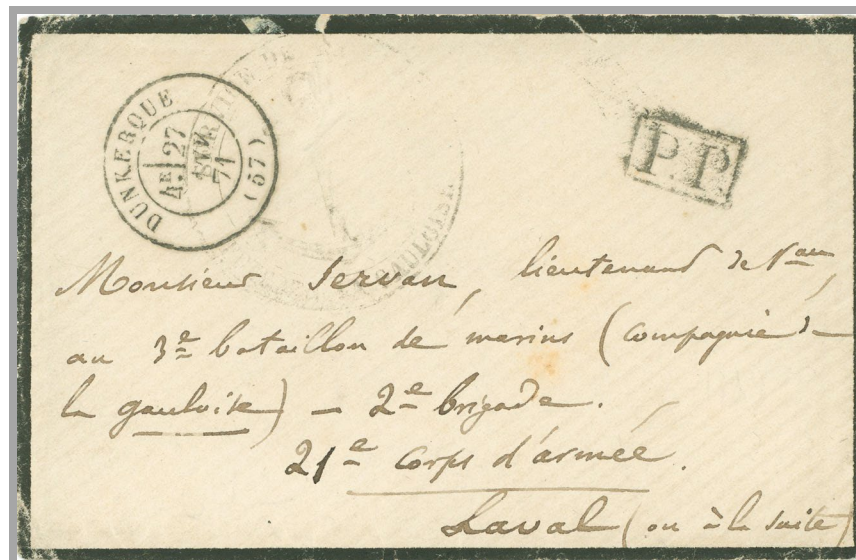 DUNKERQUE
4E 27
FEVR
71
(57)
GAULOISE
P.P.
Monsieur Servan, lieutenant de Vau,
au 3e bataillon de marins (compagnie de
la gauloise) — 2e brigade.
21e corps d'armée.
Laval (ou à la suite)